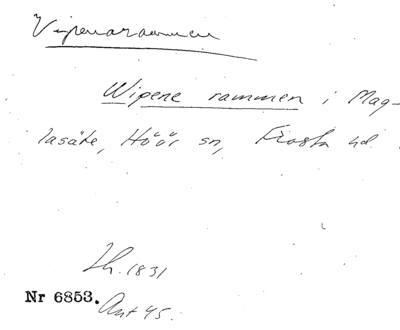 Vipenarammen
Wipene rammen i Mag-
lasäte, Höör sn, Frosta hd
Lh. 1831
Nr 6853.
Ant 45.